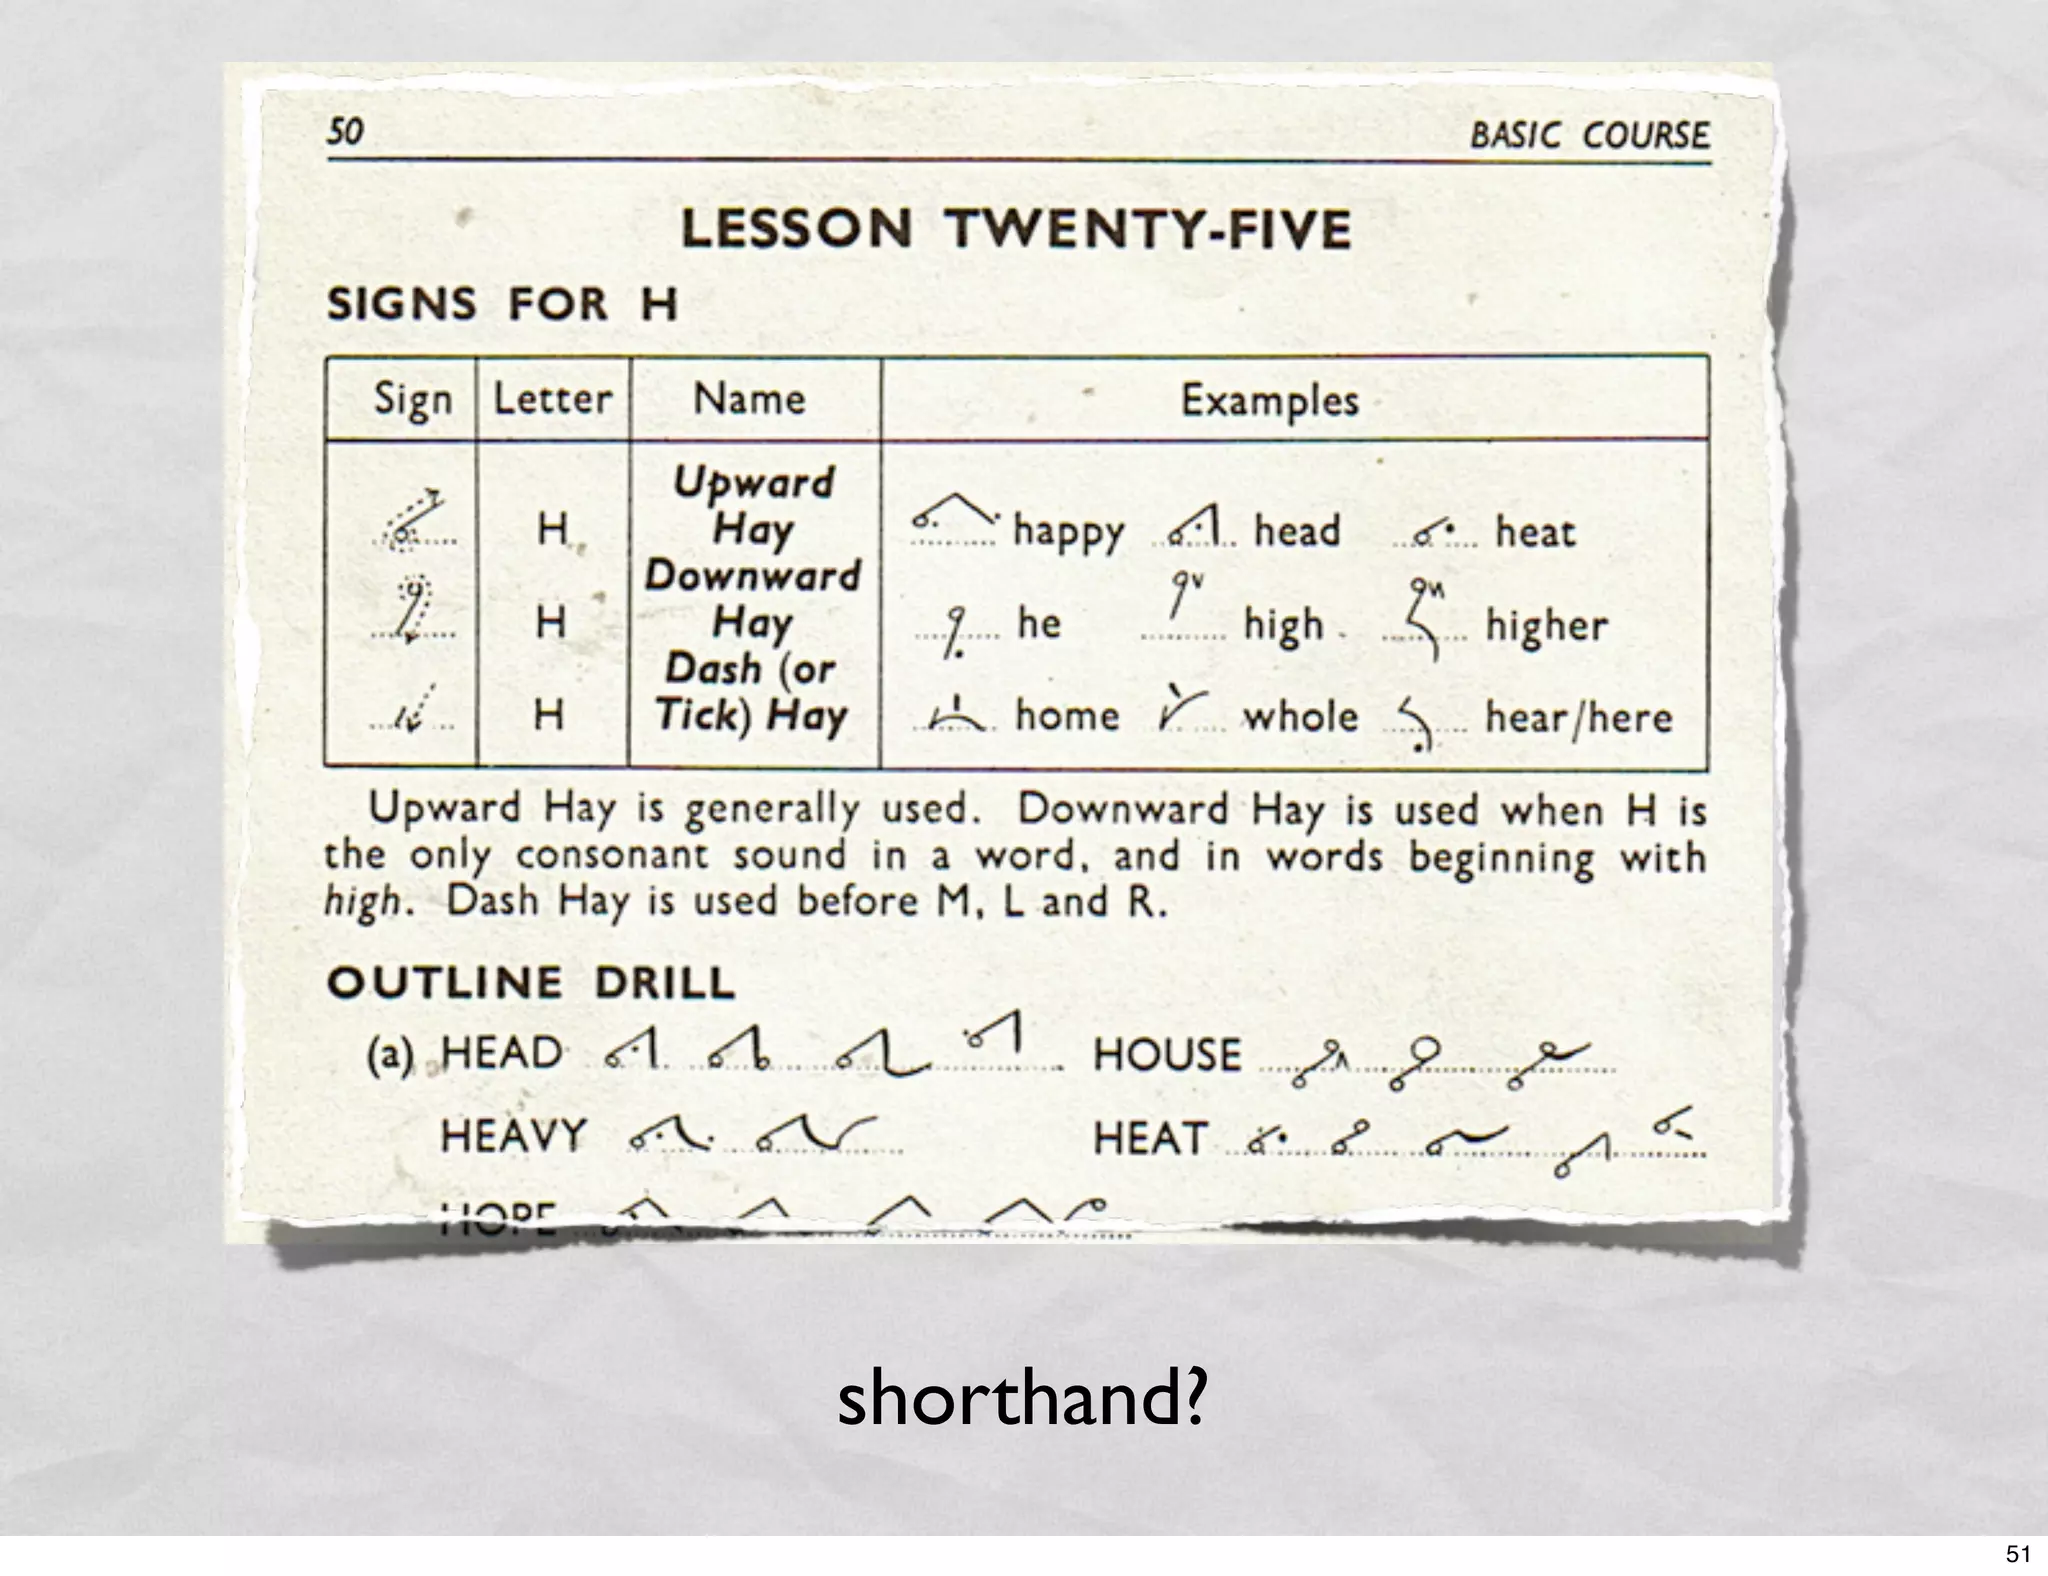 50 BASIC COURSE
LESSON TWENTY-FIVE
SIGNS FOR H
Sign Letter Name Examples
H Upward Hay happy head heat
H Downward Hay he high higher
H Dash (or Tick) Hay home whole hear/here
Upward Hay is generally used. Downward Hay is used when H is
the only consonant sound in a word, and in words beginning with
high. Dash Hay is used before M, L and R.
OUTLINE DRILL
(a) HEAD HOUSE
HEAVY HEAT
HOPE
shorthand?
51